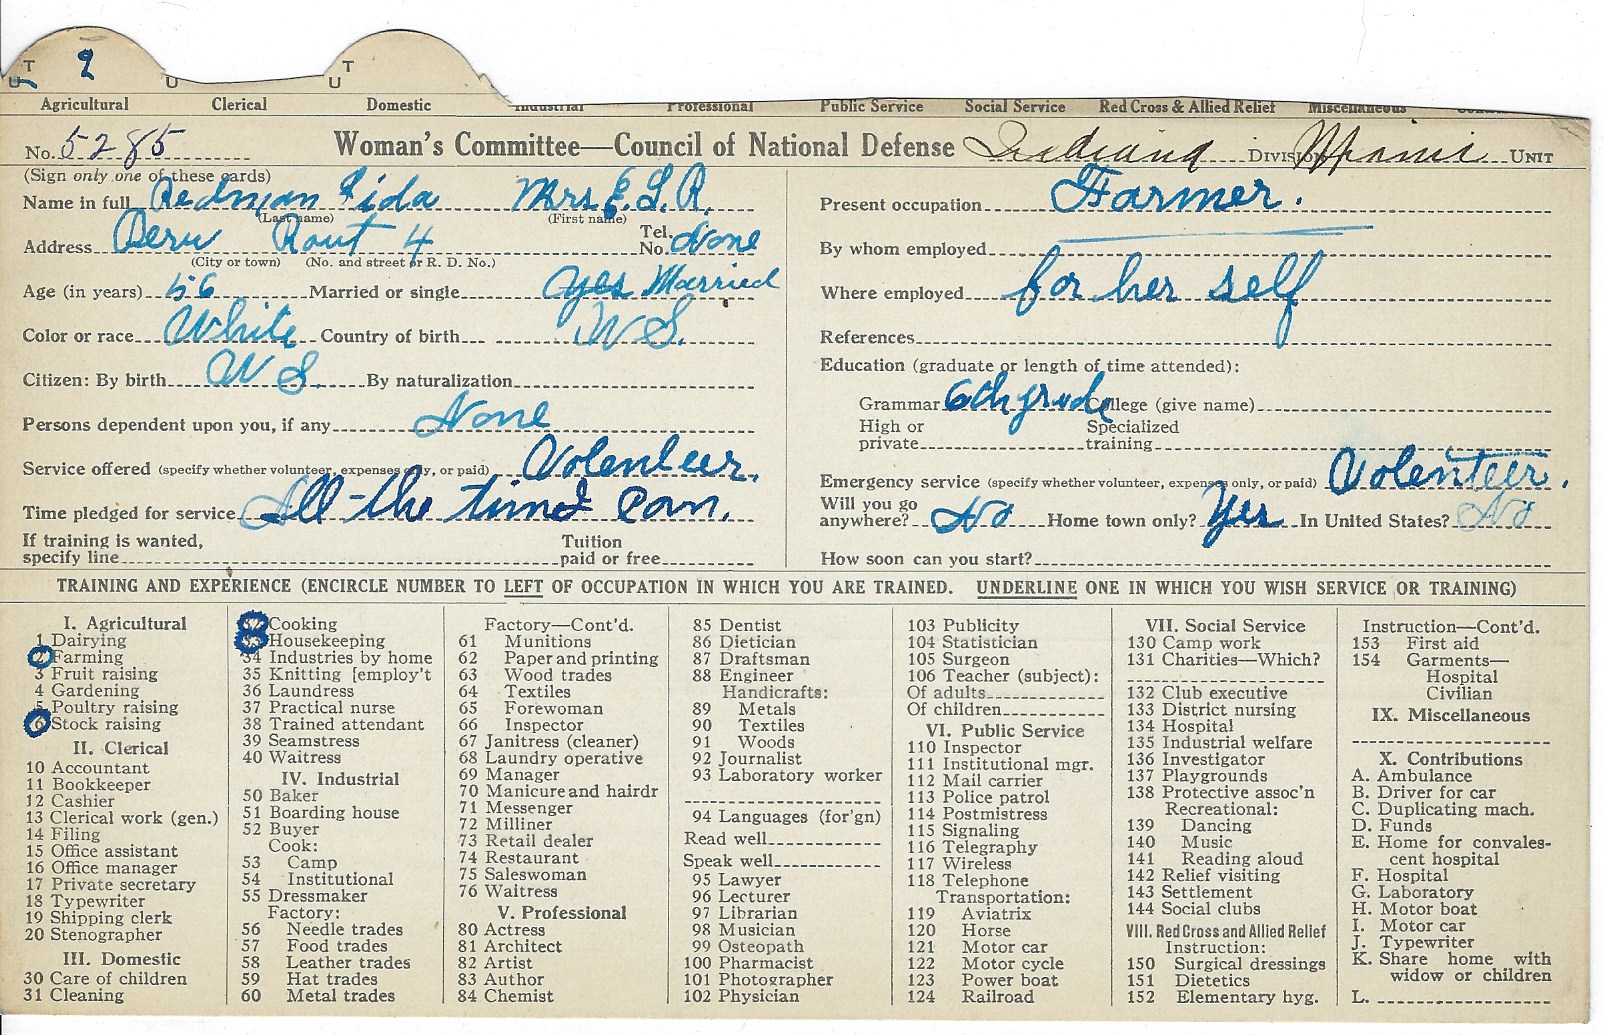 T T
U 2 U U
Agricultural Clerical Domestic Industrial Professional Public Service Social Service Red Cross & Allied Relief Miscellaneous
No. 5285 Woman's Committee—Council of National Defense Indiana Division Miami Unit
(Sign only one of these cards)
Name in full Redman Lida Mrs E. L. R.
(Last name) (First name)
Address Peru Rout 4 Tel. No. None
(City or town) (No. and street or R. D. No.)
Age (in years) 56 Married or single yes Married
Color or race White Country of birth U S.
Citizen: By birth U S. By naturalization
Persons dependent upon you, if any None
Service offered (specify whether volunteer, expenses only, or paid) Volenteer.
Time pledged for service All the time I can.
If training is wanted, specify line Tuition paid or free
Present occupation Farmer.
By whom employed
Where employed for her self
References
Education (graduate or length of time attended):
Grammar 6th grade College (give name)
High or private Specialized training
Emergency service (specify whether volunteer, expenses only, or paid) Volenteer.
Will you go anywhere? No Home town only? Yes In United States? No
How soon can you start?
TRAINING AND EXPERIENCE (ENCIRCLE NUMBER TO LEFT OF OCCUPATION IN WHICH YOU ARE TRAINED. UNDERLINE ONE IN WHICH YOU WISH SERVICE OR TRAINING)
I. Agricultural
1 Dairying
2 Farming
3 Fruit raising
4 Gardening
5 Poultry raising
6 Stock raising
II. Clerical
10 Accountant
11 Bookkeeper
12 Cashier
13 Clerical work (gen.)
14 Filing
15 Office assistant
16 Office manager
17 Private secretary
18 Typewriter
19 Shipping clerk
20 Stenographer
III. Domestic
30 Care of children
31 Cleaning
32 Cooking
33 Housekeeping
34 Industries by home
35 Knitting [employ't
36 Laundress
37 Practical nurse
38 Trained attendant
39 Seamstress
40 Waitress
IV. Industrial
50 Baker
51 Boarding house
52 Buyer
Cook:
53 Camp
54 Institutional
55 Dressmaker
Factory:
56 Needle trades
57 Food trades
58 Leather trades
59 Hat trades
60 Metal trades
Factory—Cont'd.
61 Munitions
62 Paper and printing
63 Wood trades
64 Textiles
65 Forewoman
66 Inspector
67 Janitress (cleaner)
68 Laundry operative
69 Manager
70 Manicure and hairdr
71 Messenger
72 Milliner
73 Retail dealer
74 Restaurant
75 Saleswoman
76 Waitress
V. Professional
80 Actress
81 Architect
82 Artist
83 Author
84 Chemist
85 Dentist
86 Dietician
87 Draftsman
88 Engineer
Handicrafts:
89 Metals
90 Textiles
91 Woods
92 Journalist
93 Laboratory worker
94 Languages (for'gn)
Read well
Speak well
95 Lawyer
96 Lecturer
97 Librarian
98 Musician
99 Osteopath
100 Pharmacist
101 Photographer
102 Physician
103 Publicity
104 Statistician
105 Surgeon
106 Teacher (subject):
Of adults
Of children
VI. Public Service
110 Inspector
111 Institutional mgr.
112 Mail carrier
113 Police patrol
114 Postmistress
115 Signaling
116 Telegraphy
117 Wireless
118 Telephone
Transportation:
119 Aviatrix
120 Horse
121 Motor car
122 Motor cycle
123 Power boat
124 Railroad
VII. Social Service
130 Camp work
131 Charities—Which?
132 Club executive
133 District nursing
134 Hospital
135 Industrial welfare
136 Investigator
137 Playgrounds
138 Protective assoc'n
Recreational:
139 Dancing
140 Music
141 Reading aloud
142 Relief visiting
143 Settlement
144 Social clubs
VIII. Red Cross and Allied Relief
Instruction:
150 Surgical dressings
151 Dietetics
152 Elementary hyg.
Instruction—Cont'd.
153 First aid
154 Garments—
Hospital
Civilian
IX. Miscellaneous
X. Contributions
A. Ambulance
B. Driver for car
C. Duplicating mach.
D. Funds
E. Home for convales-
cent hospital
F. Hospital
G. Laboratory
H. Motor boat
I. Motor car
J. Typewriter
K. Share home with
widow or children
L.